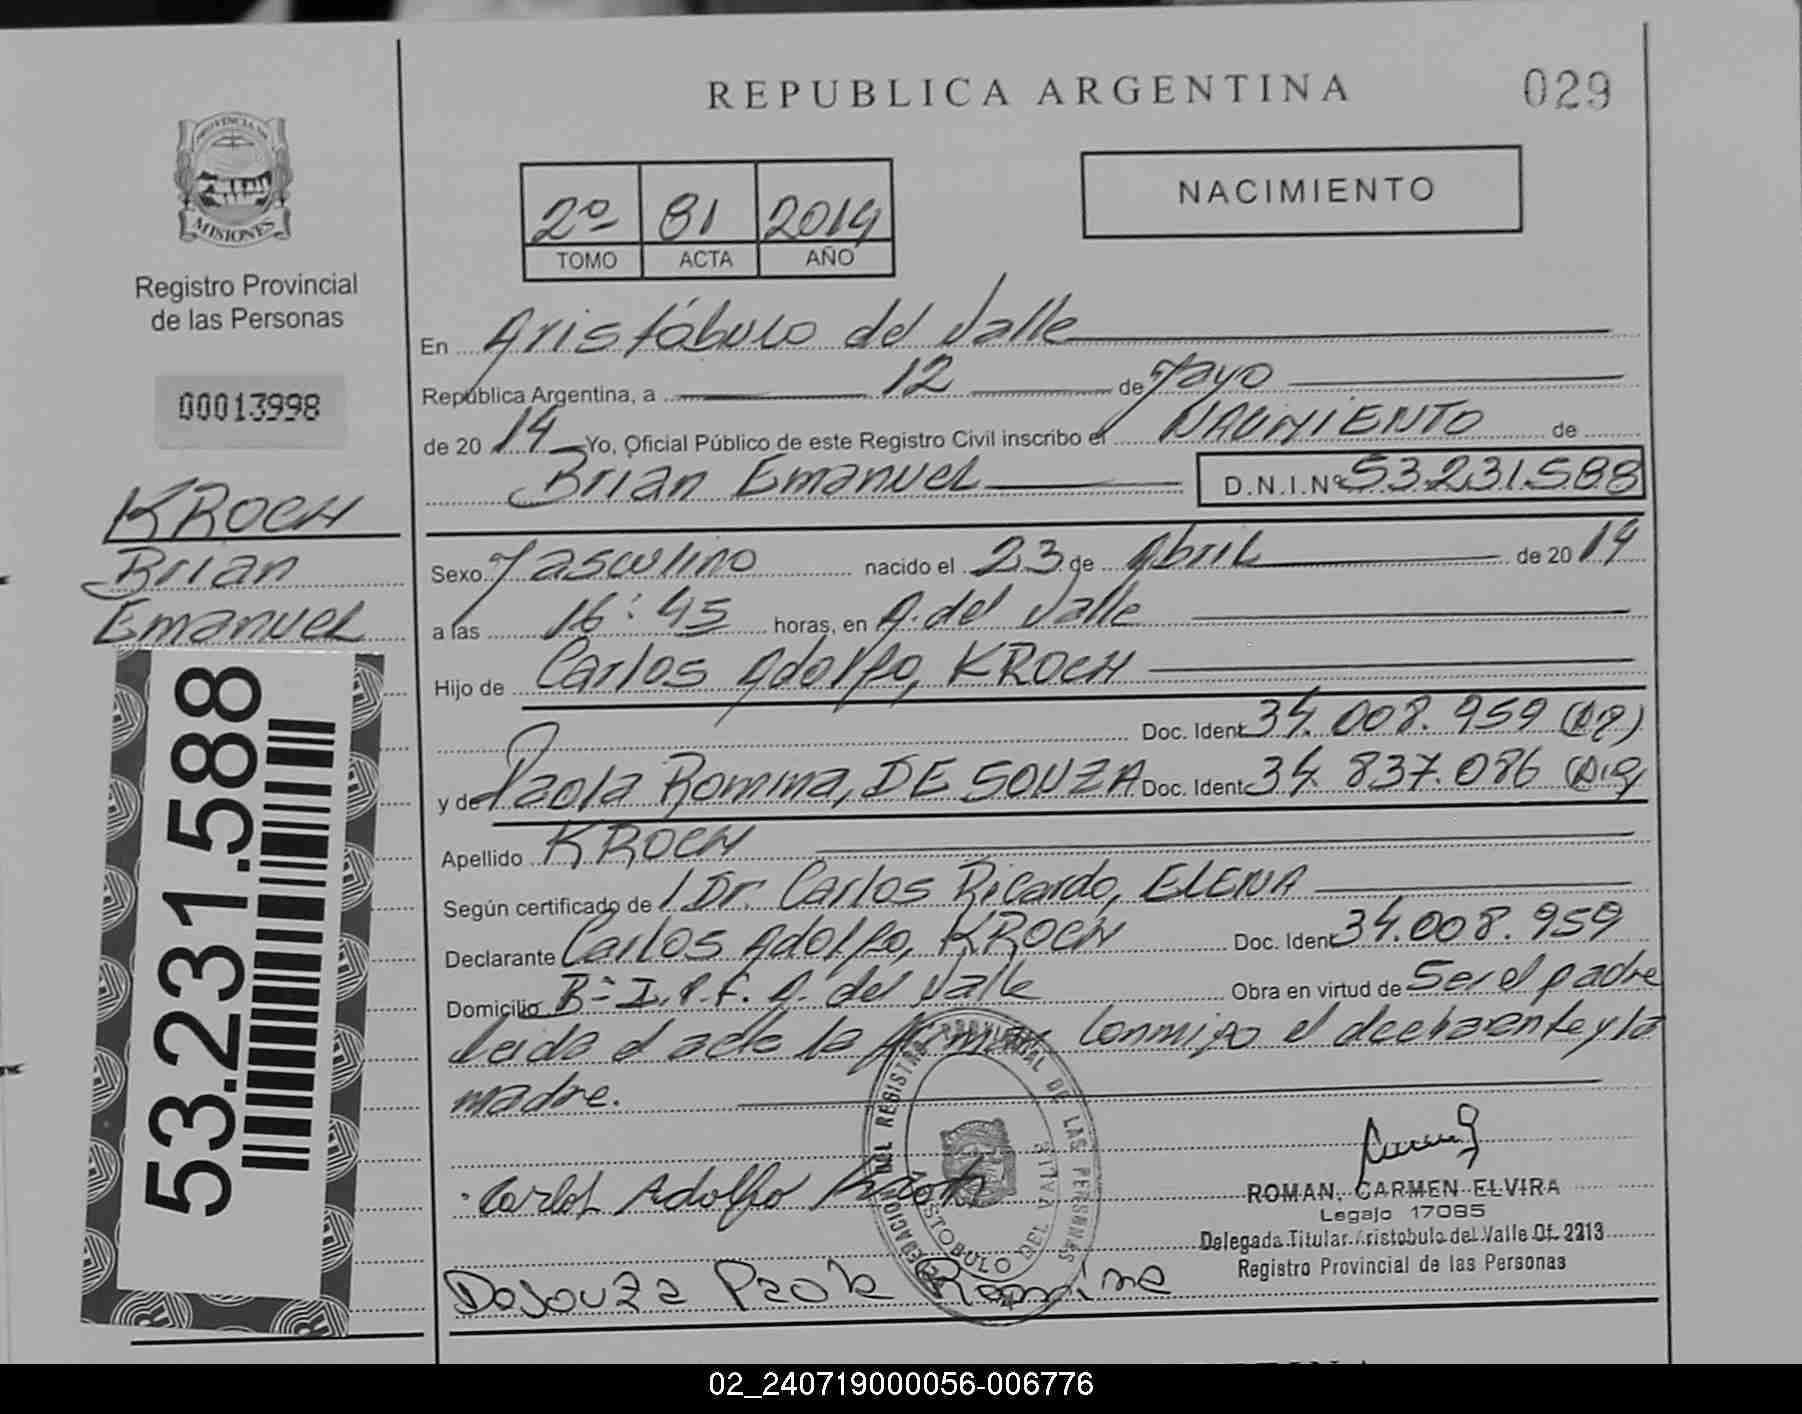 REPUBLICA ARGENTINA
029
PROVINCIA DE
MISIONES
Registro Provincial
de las Personas
00013998
KROCH
Brian
Emanuel
53.231.588
2º 81 2014
TOMO ACTA AÑO
NACIMIENTO
En Aristóbulo del Valle
República Argentina, a 12 de Mayo
de 20 14 Yo, Oficial Público de este Registro Civil inscribo el NACIMIENTO de
Brian Emanuel D.N.I.Nº 53.231.588
Sexo Masculino nacido el 23 de Abril de 20 14
a las 16:45 horas, en A. del Valle
Hijo de Carlos Adolfo, KROCH
Doc. Ident 34.008.959
y de Paola Romina, DE SOUZA Doc. Ident 34.837.086
Apellido KROCH
Según certificado de Dr. Carlos Ricardo, ELENA
Declarante Carlos Adolfo, KROCH Doc. Ident 34.008.959
Domicilio Bº I.P.F. A. del Valle Obra en virtud de Ser el padre
Leida el acta la firman conmigo el declarante y la
madre.
DELEGACION DEL REGISTRO PROVINCIAL DE LAS PERSONAS
ARISTOBULO DEL VALLE
Carlos Adolfo Kroch
ROMAN, CARMEN ELVIRA
Legajo 17085
Delegada Titular Aristobulo del Valle Of. 2213
Registro Provincial de las Personas
Desouza Paola Romina
02_240719000056-006776